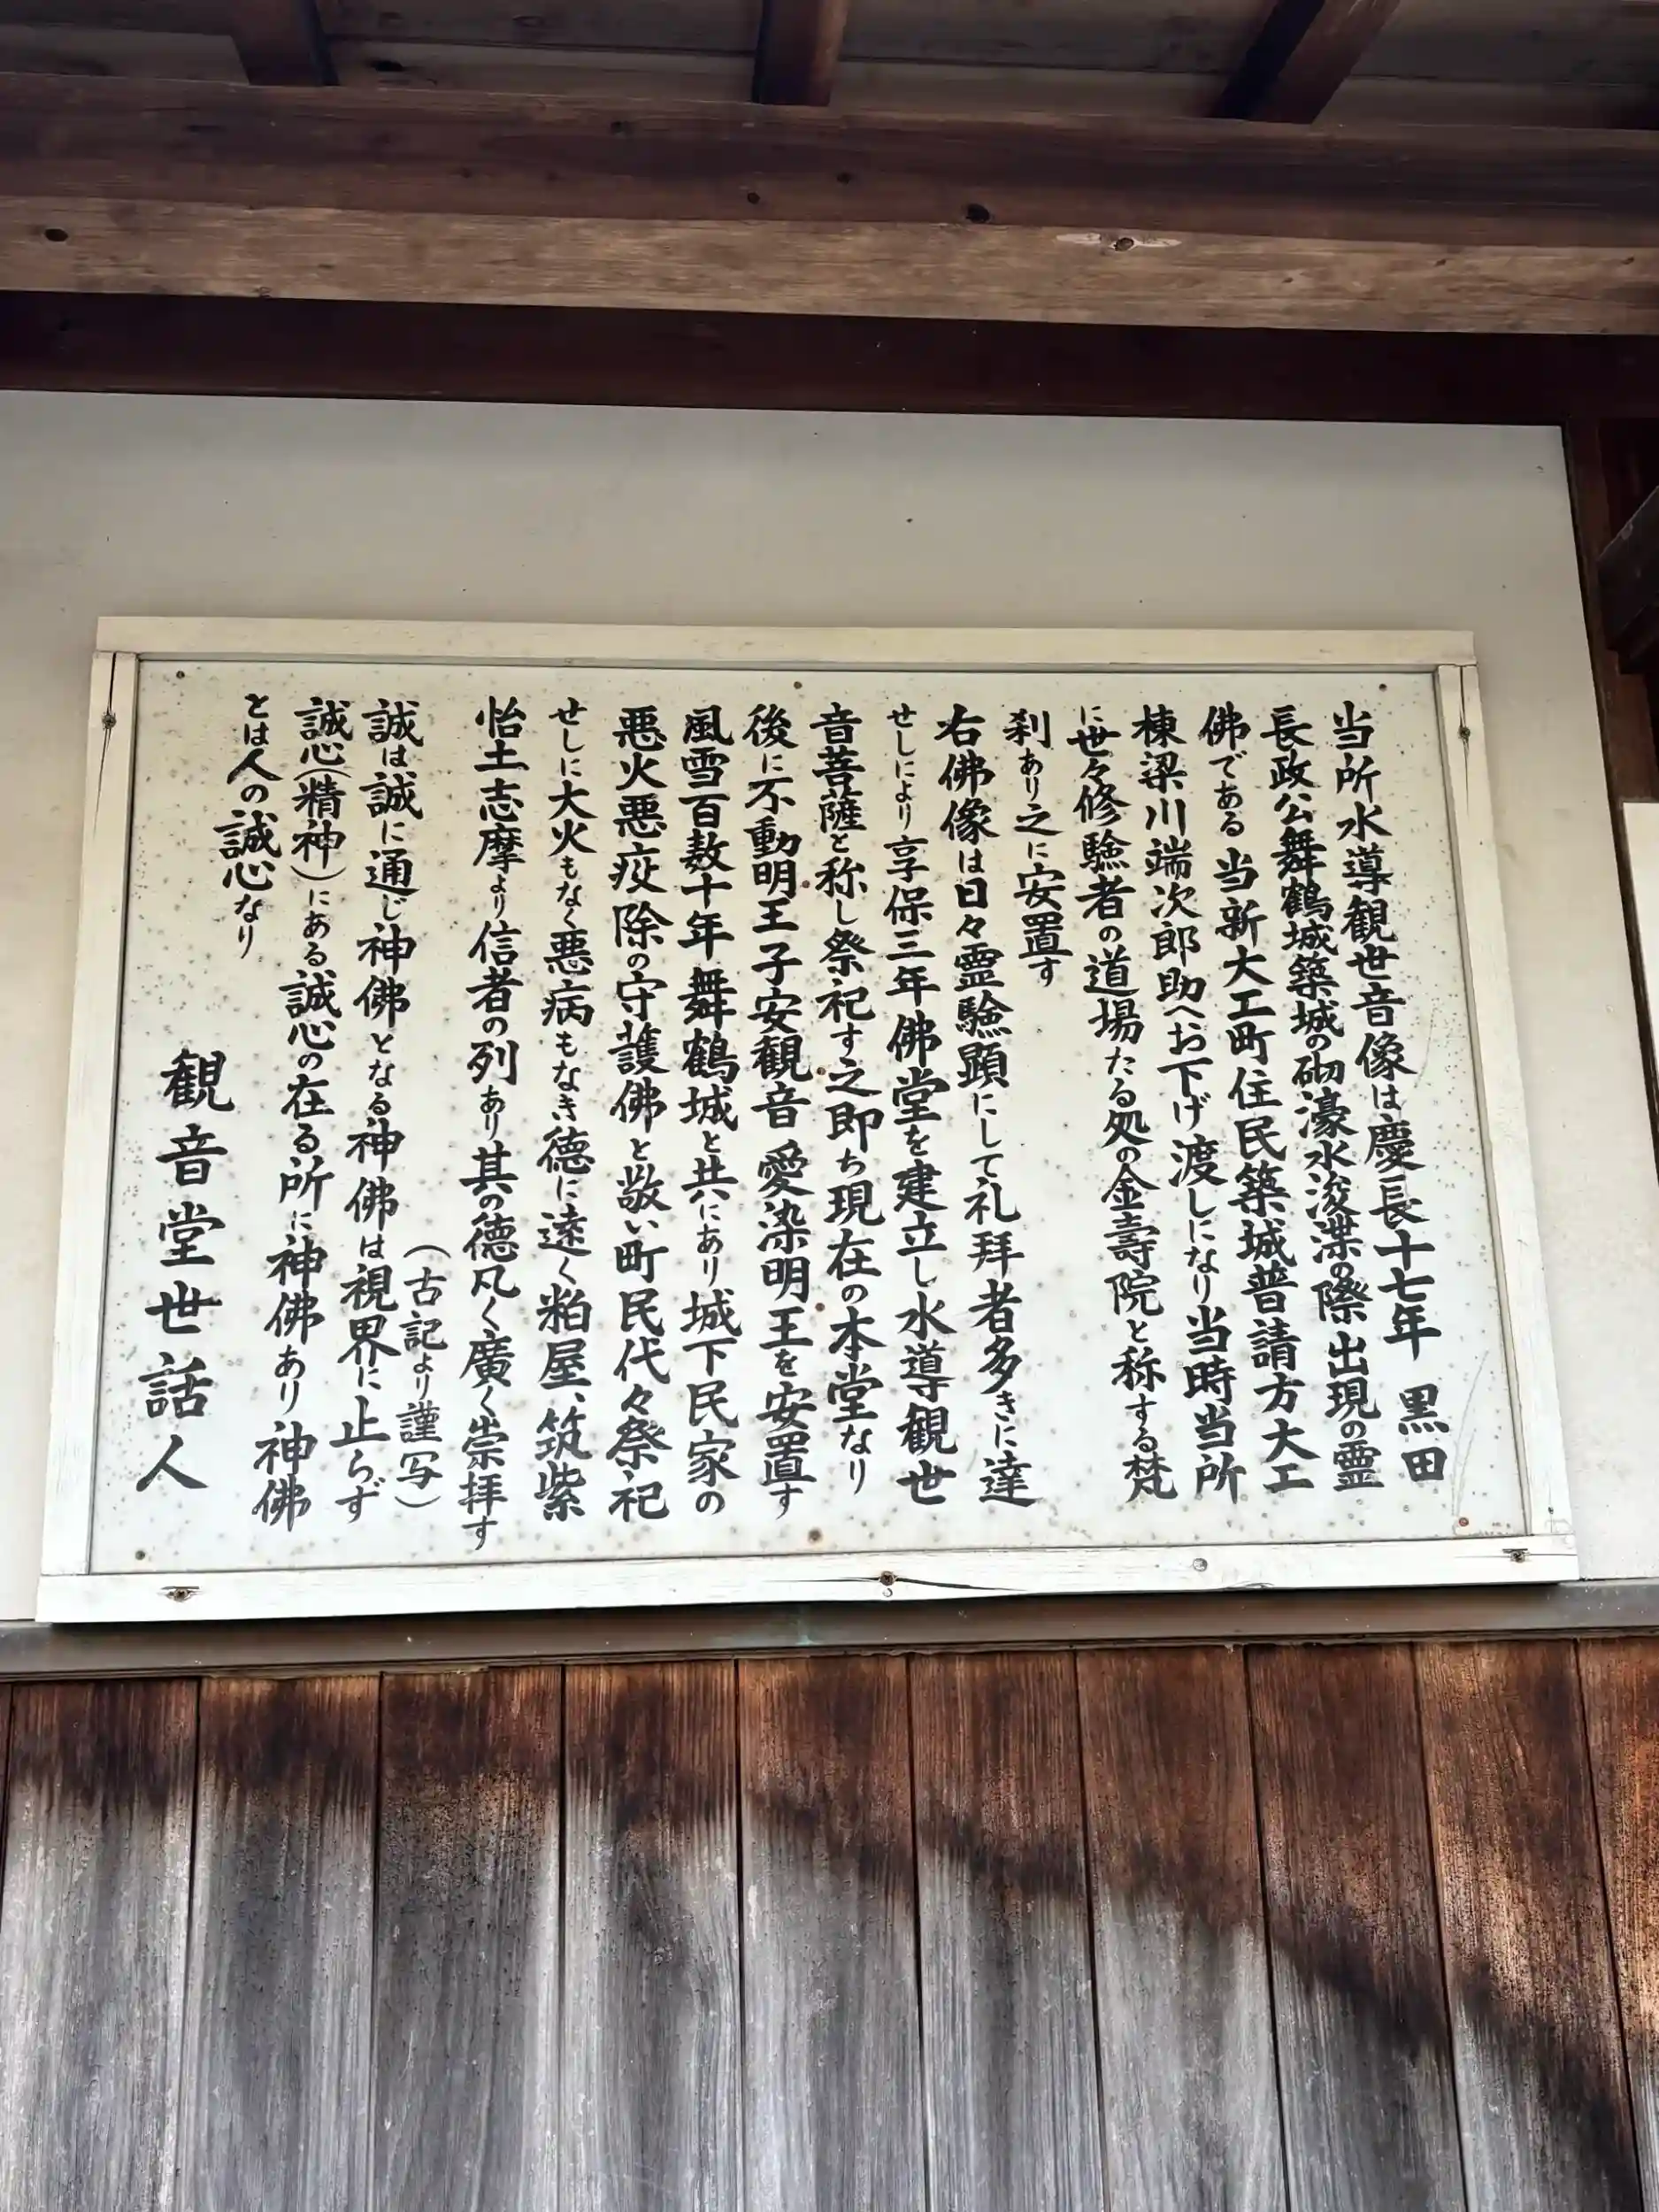 当所水導観世音像は慶長十七年 黒田
長政公舞鶴城築城の砌濠水浚渫の際出現の霊
佛である 当新大工町住民築城普請方大工
棟梁川端次郎助へお下げ渡しになり当時当所
に世々修験者の道場たる処の金壽院と称する梵
刹あり之に安置す
右佛像は日々霊験顕にして礼拝者多きに達
せしにより享保三年佛堂を建立し水導観世
音菩薩と称し祭祀す之即ち現在の本堂なり
後に不動明王子安観音 愛染明王を安置す
風雪百数十年舞鶴城と共にあり城下民家の
悪火悪疫除の守護佛と敬い町民代々祭祀
せしに大火もなく悪病もなき徳に遠く粕屋、筑紫
怡土志摩より信者の列あり其の徳凡く廣く崇拝す
（古記より謹写）
誠は誠に通じ神佛となる神佛は視界に止らず
誠心（精神）にある誠心の在る所に神佛あり神佛
とは人の誠心なり
観音堂世話人